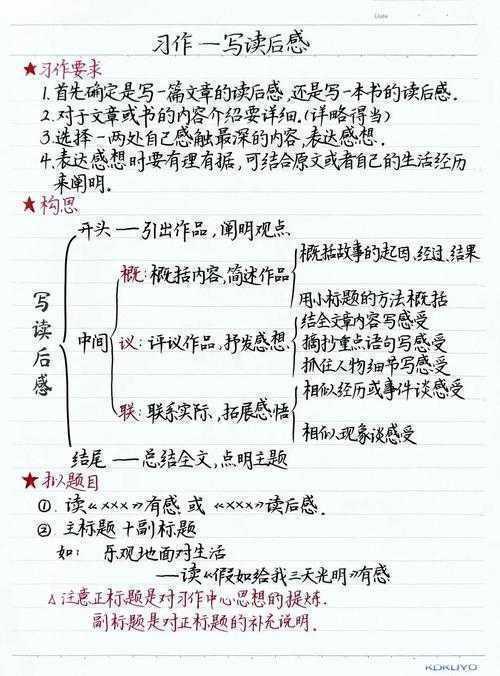 Date
习作一写读后感
★习作要求
1.首先确定是写一篇文章的读后感,还是写一本书的读后感.
2.对于文章或书的内容介绍要详细.(详略得当)
3.选择一两处自己感触最深的内容,表达感想.
4.表达感想时要有理有据,可结合原文或者自己的生活经历
来阐明.
★构思
写读后感
开头 — 引出作品,阐明观点.
中间
概:概括内容,简述作品
概括故事的起因、经过、结果
用小标题的方法概括
议:评议作品,抒发感想.
结全文章内容写感受
摘抄重点语句写感受
抓住人物细节写感受
联:联系实际、拓展感悟
相似经历或事件谈感受
相似现象谈感受
结尾 — 总结全文,点明主题
★拟题目
①.读《×××》有感 或 《×××》读后感.
② 主标题 十副标题
如: 乐观地面对生活
—读《假如给我三天光明》有感
△注意正标题是对习作中心思想的提炼.
副标题是对正标题的补充说明.
KOKUYO